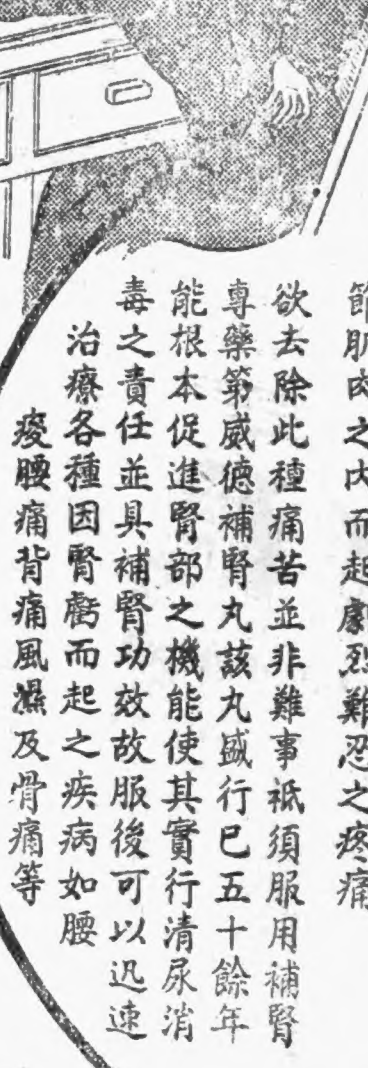 節肌肉之內而起劇烈難忍之疼痛
欲去除此種痛苦並非難事祗須服用補腎
專藥第威德補腎丸該丸盛行已五十餘年
能根本促進腎部之機能使其實行清尿消
毒之責任並具補腎功效故服後可以迅速
治療各種因腎虧而起之疾病如腰
痠腰痛背痛風濕及骨痛等